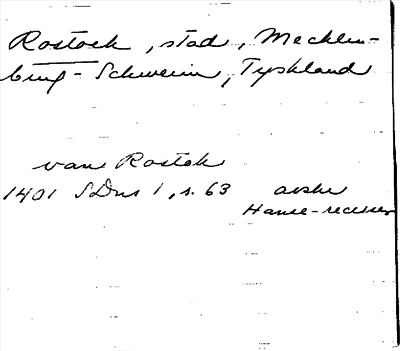 Rostock, stad, Mecklen-
burg-Schwerin, Tyskland
van Rostok
1401 SDns 1, s. 63 avskr
Hanse-recesser